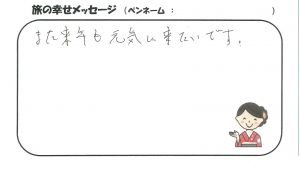 旅の幸せメッセージ (ペンネーム : )
また来年も元気に来たいです。